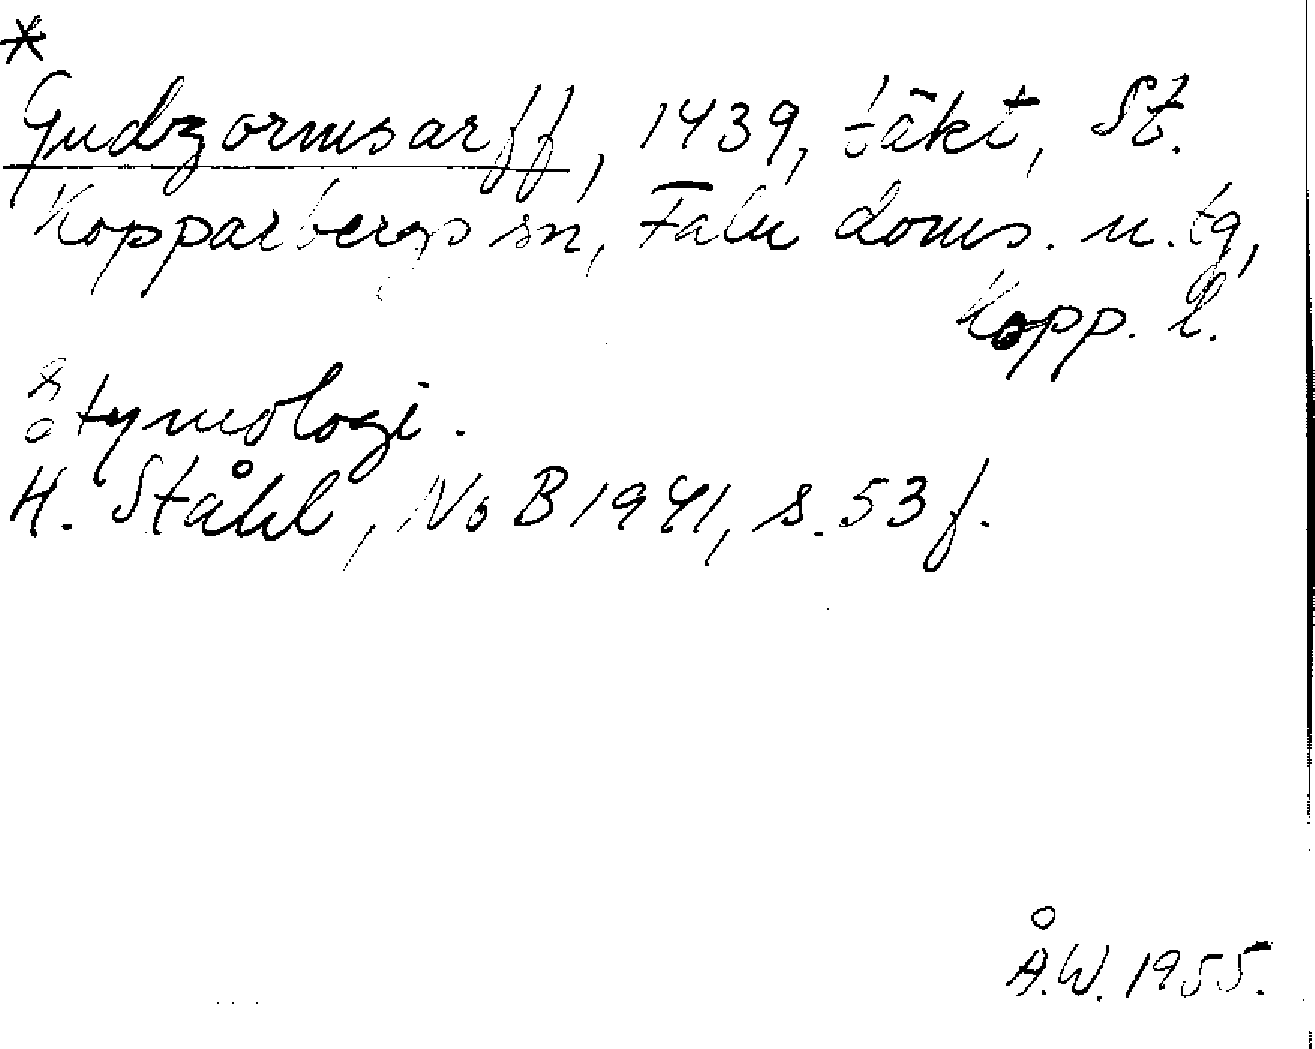 *
Gudzormsarff, 1439, täkt, St.
Kopparbergs sn, Falu doms. n. tg,
Kopp. l.
Etymologi.
H. Ståhl, NoB 1941, s. 53 f.
Å.W. 1955.